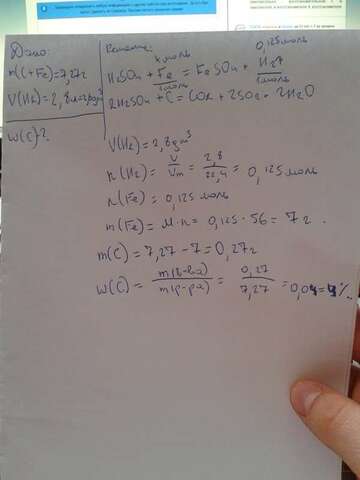 Дано:
m(+Fe)=7,27г
V(H2)=2,8
w(C)-?
Решение:
x моль
0,125моль
H2SO4 + Fe = FeSO4 + H2↑
1моль
1моль
2H2SO4 + C = CO2 + 2SO2 + 2H2O
V(H2)=2,8дм³
n(H2)= V/Vm = 2,8/22,4 = 0,125 моль
n(Fe) = 0,125 моль
m(Fe) = M·n = 0,125·56 = 7г.
m(C) = 7,27-7 = 0,27г
w(C) = m(в-ва)/m(р-ра) = 0,27/7,27 = 0,04=4%